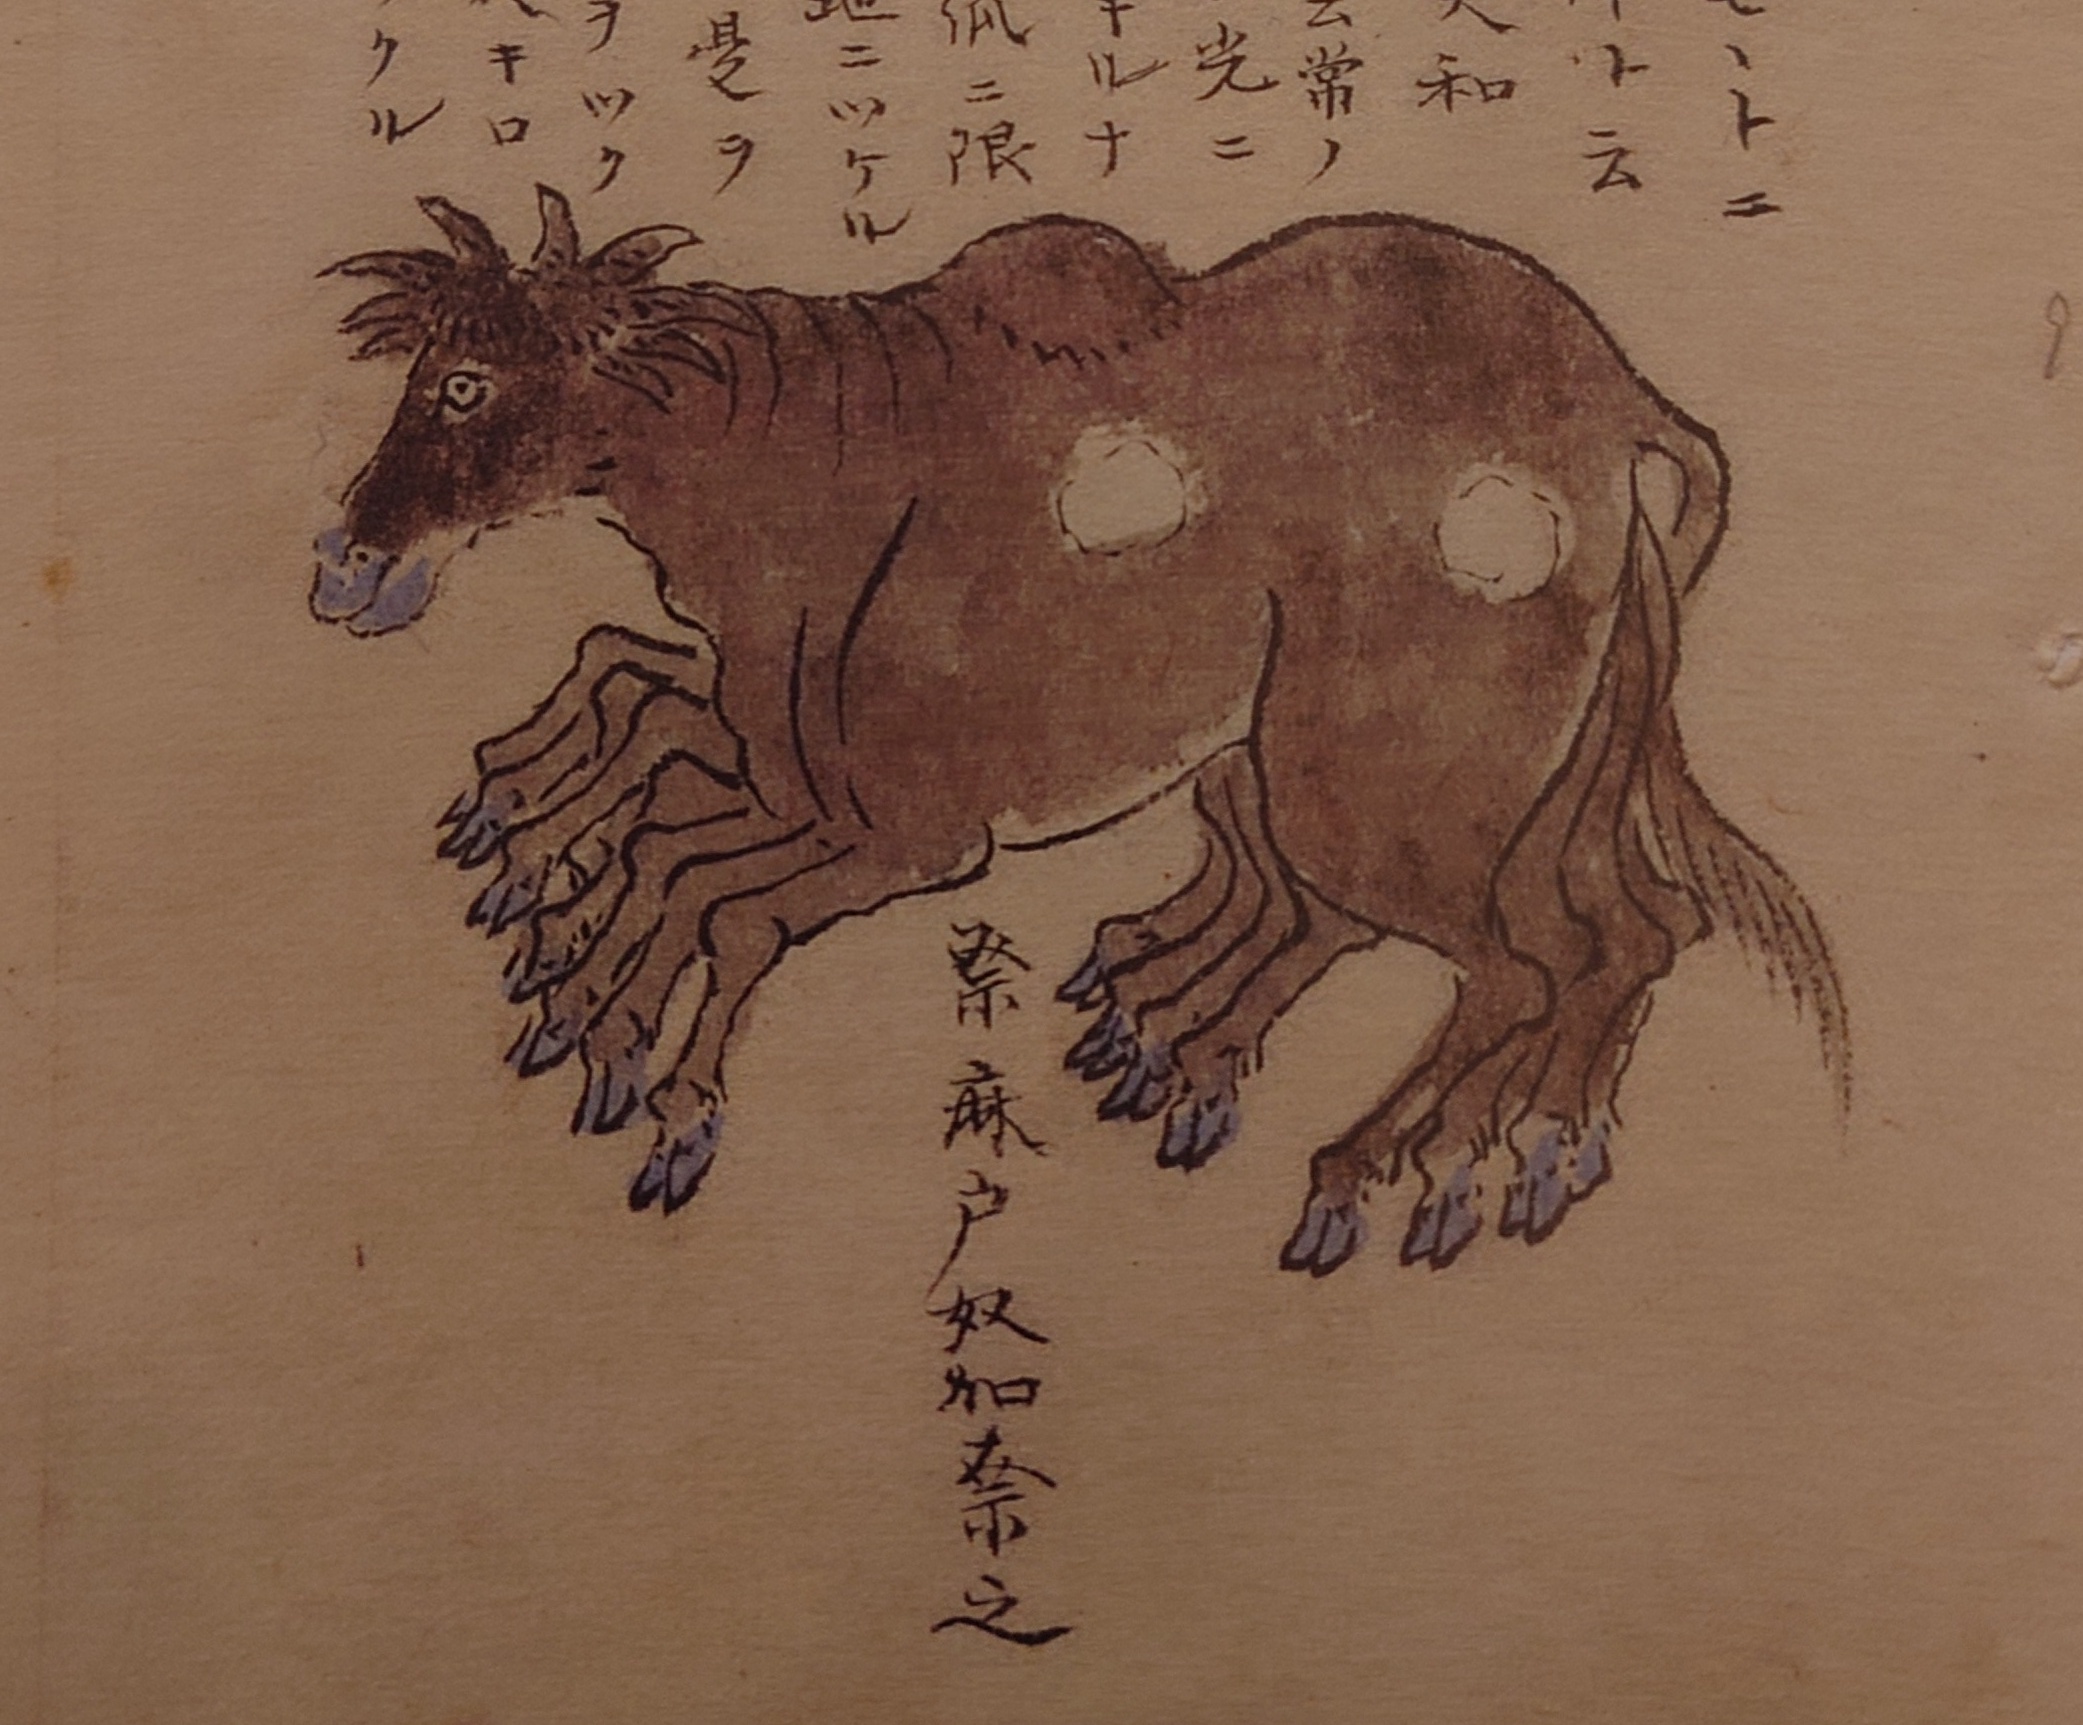 、トニ
ト云
和
云常ノ
光ニ
キルナ
狐ニ限
地ニツケル
ヲ
ヲツク
キロ
クル
祭麻戸奴加奈之